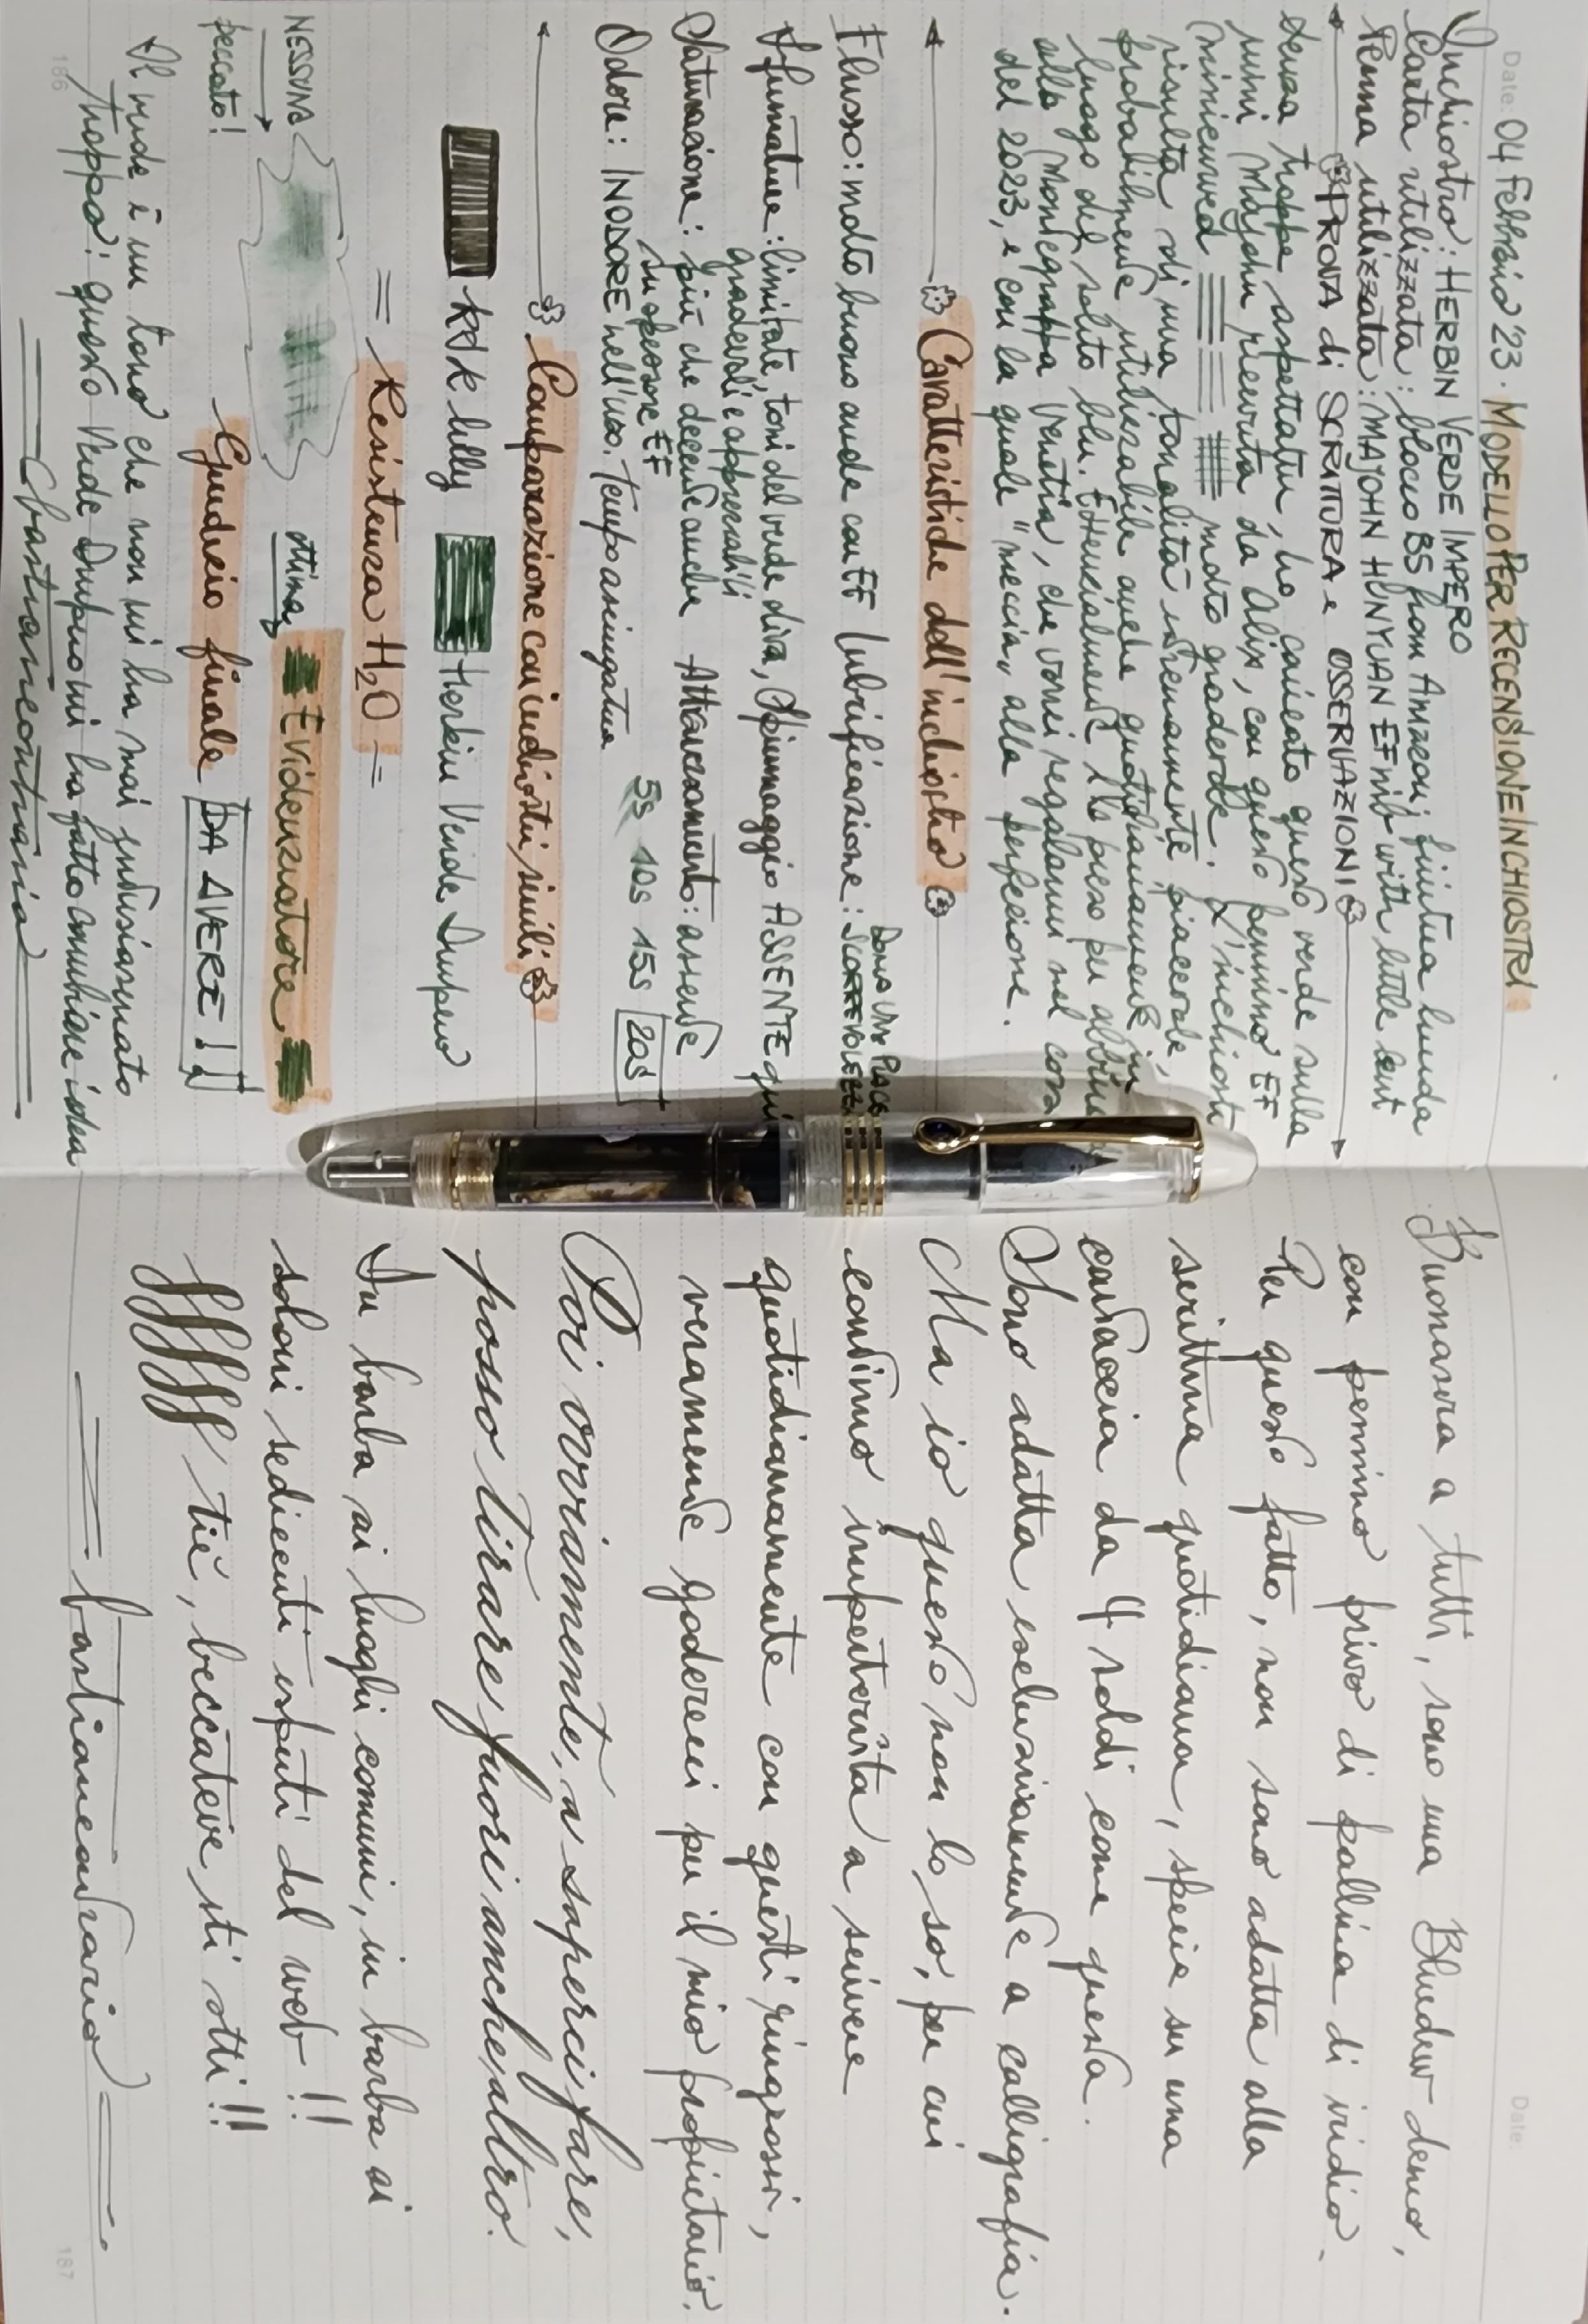 Date: 04 febbraio '23. MODELLO PER RECENSIONE INCHIOSTRI
Inchiostro: HERBIN VERDE IMPERO
Carta utilizzata: blocco B5 from Amazon; finitura lucida
Penna utilizzata: MAJOHN HUNYUAN EF nib with little bent
PROVA di SCRATTURA e OSSERVAZIONI
Senza troppe aspettative, ho caricato questo verde sulla
mini Majohn ricevuta da Alix, con questo pennino EF
miniciurved molto gradevole. L'inchiostro
risulta di una tonalità estremamente piacevole,
probabilmente utilizzabile anche quotidianamente in
luogo del solito blu. Essenzialmente l'ho preso per abbinarlo
alla Montegrappa Venetia, che vorrei regalarmi nel corso
del 2023, e con la quale "meccia" alla perfezione.
Caratteristiche dell'inchiostro
Flusso: molto buono anche con EF Lubrificazione: SCORREVOLEZZA
DONA UNA PIACE
Sfumature: limitate, toni del verde oliva, Spiumaggio ASSENTE qui
gradevoli e apprezzabili
Saturazione: più che decente anche Attraversamento: assente
su spessore EF
Odore: INODORE nell'uso. Tempo asciugatura 5s 10s 15s 20s
Comparazione con inchiostri simili
K&K Lilly Herbin Verde Impero
= Resistenza H2O =
NESSUNA
peccato!
ottima Evidenziatore
Giudizio finale DA AVERE!!
Il verde è un tono che non mi ha mai entusiasmato
troppo: questo Verde Impero mi ha fatto cambiare idea
bastiancontrario
186
Date:
Buonasera a tutti, sono una Blunder demo,
con pennino privo di pallina di iridio.
Per questo fatto, non sono adatta alla
scrittura quotidiana, specie su una
cartaccia da 4 soldi come questa.
Sono adatta esclusivamente a calligrafia.
Ma io questo non lo so, per cui
continuo imperterrita a scrivere
quotidianamente con questi ringrossi,
veramente goderecci per il mio proprietario.
Poi ovviamente, a saperci fare,
posso tirare fuori anche altro.
In barba ai luoghi comuni, in barba ai
soloni sedicenti esperti del web!!
ffff tiè, beccateve sti stti!!
bastiancontrario
187